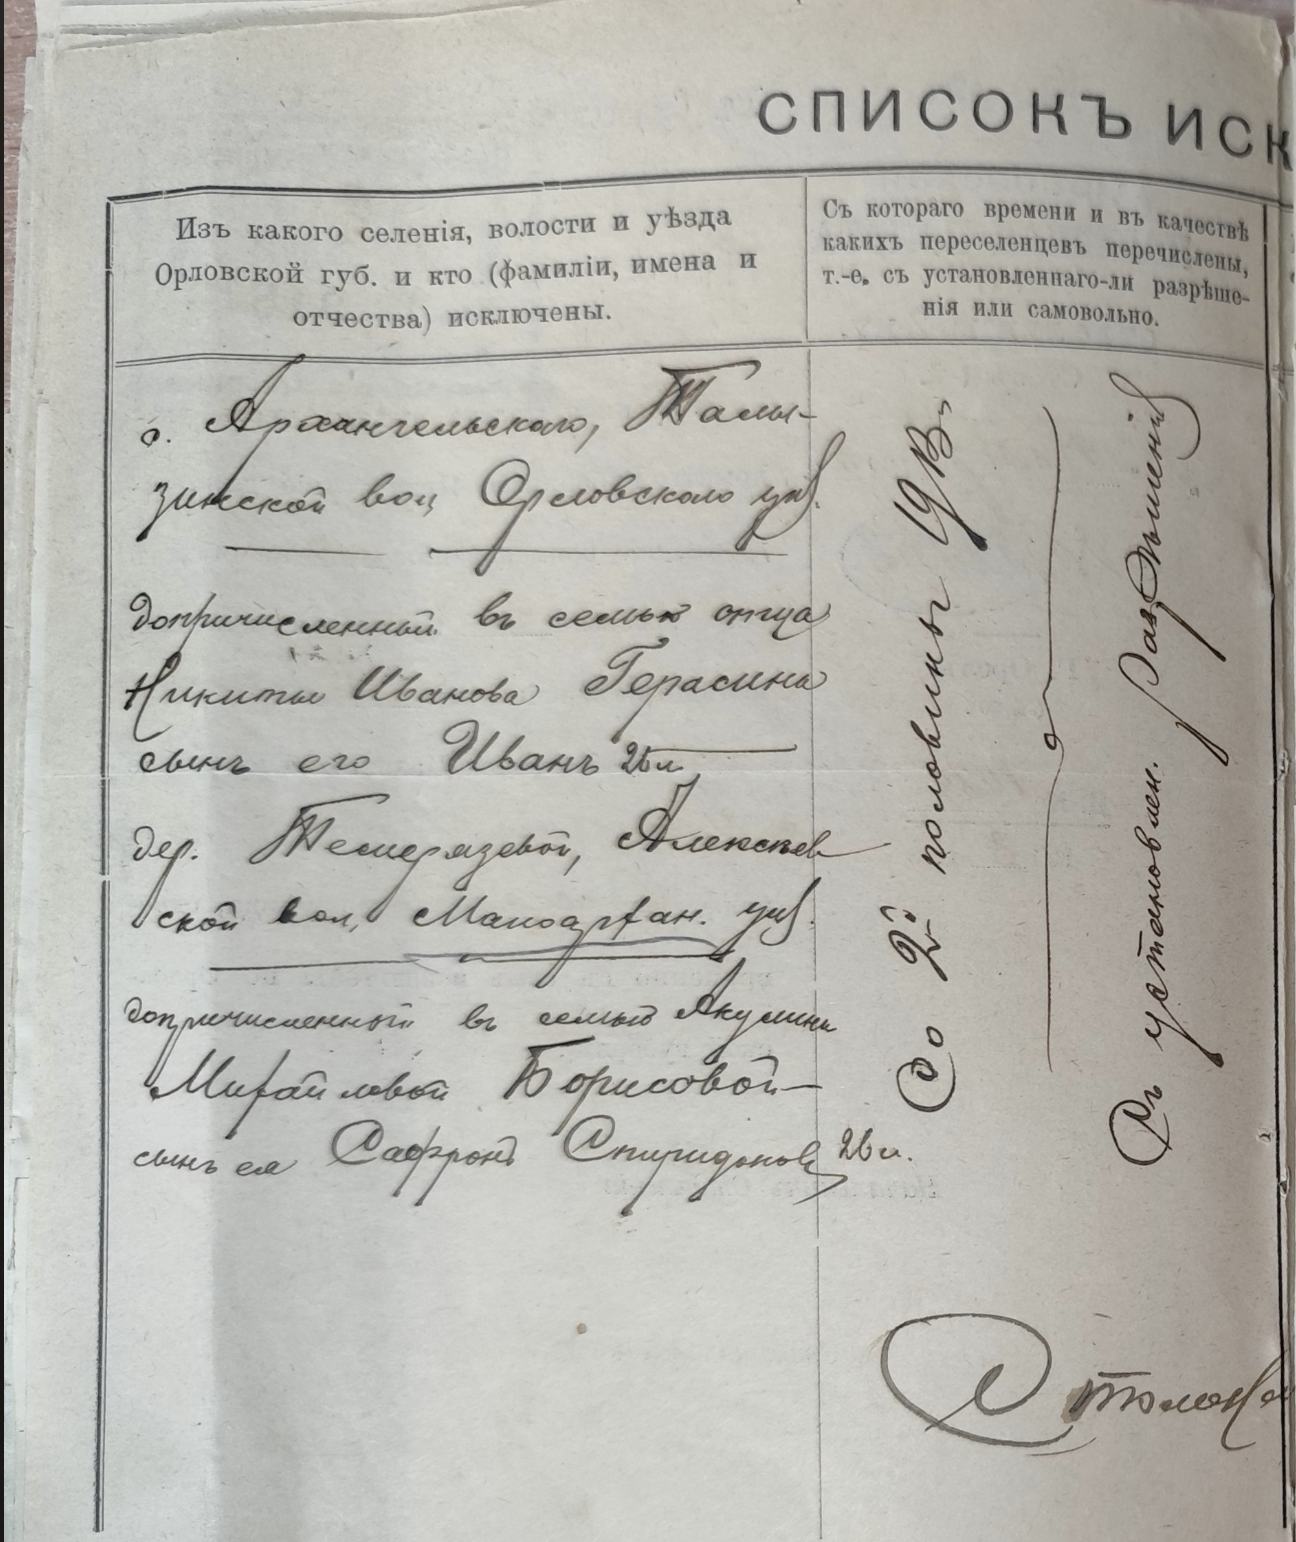 СПИСОКЪ ИСК
Изъ какого селенія, волости и уѣзда
Орловской губ. и кто (фамиліи, имена и
отчества) исключены.
Съ котораго времени и въ качествѣ
какихъ переселенцевъ перечислены,
т.-е. съ установленнаго-ли разрѣше-
нія или самовольно.
с. Архангельскаго, Талы-
зинской вол Орловскаго уѣз.
допричисленный въ семью отца
Никиты Иванова Герасина
сынъ его Иванъ
дер. Темерязевой, Алексѣев
ской вол. Малоархан. уѣз.
допричисленный въ семью Акулины
Михайловой Борисовой
сынъ ея Сафронъ Спиридоновъ 26 л.
Со 2й половины
Съ установлен. разрѣшенія